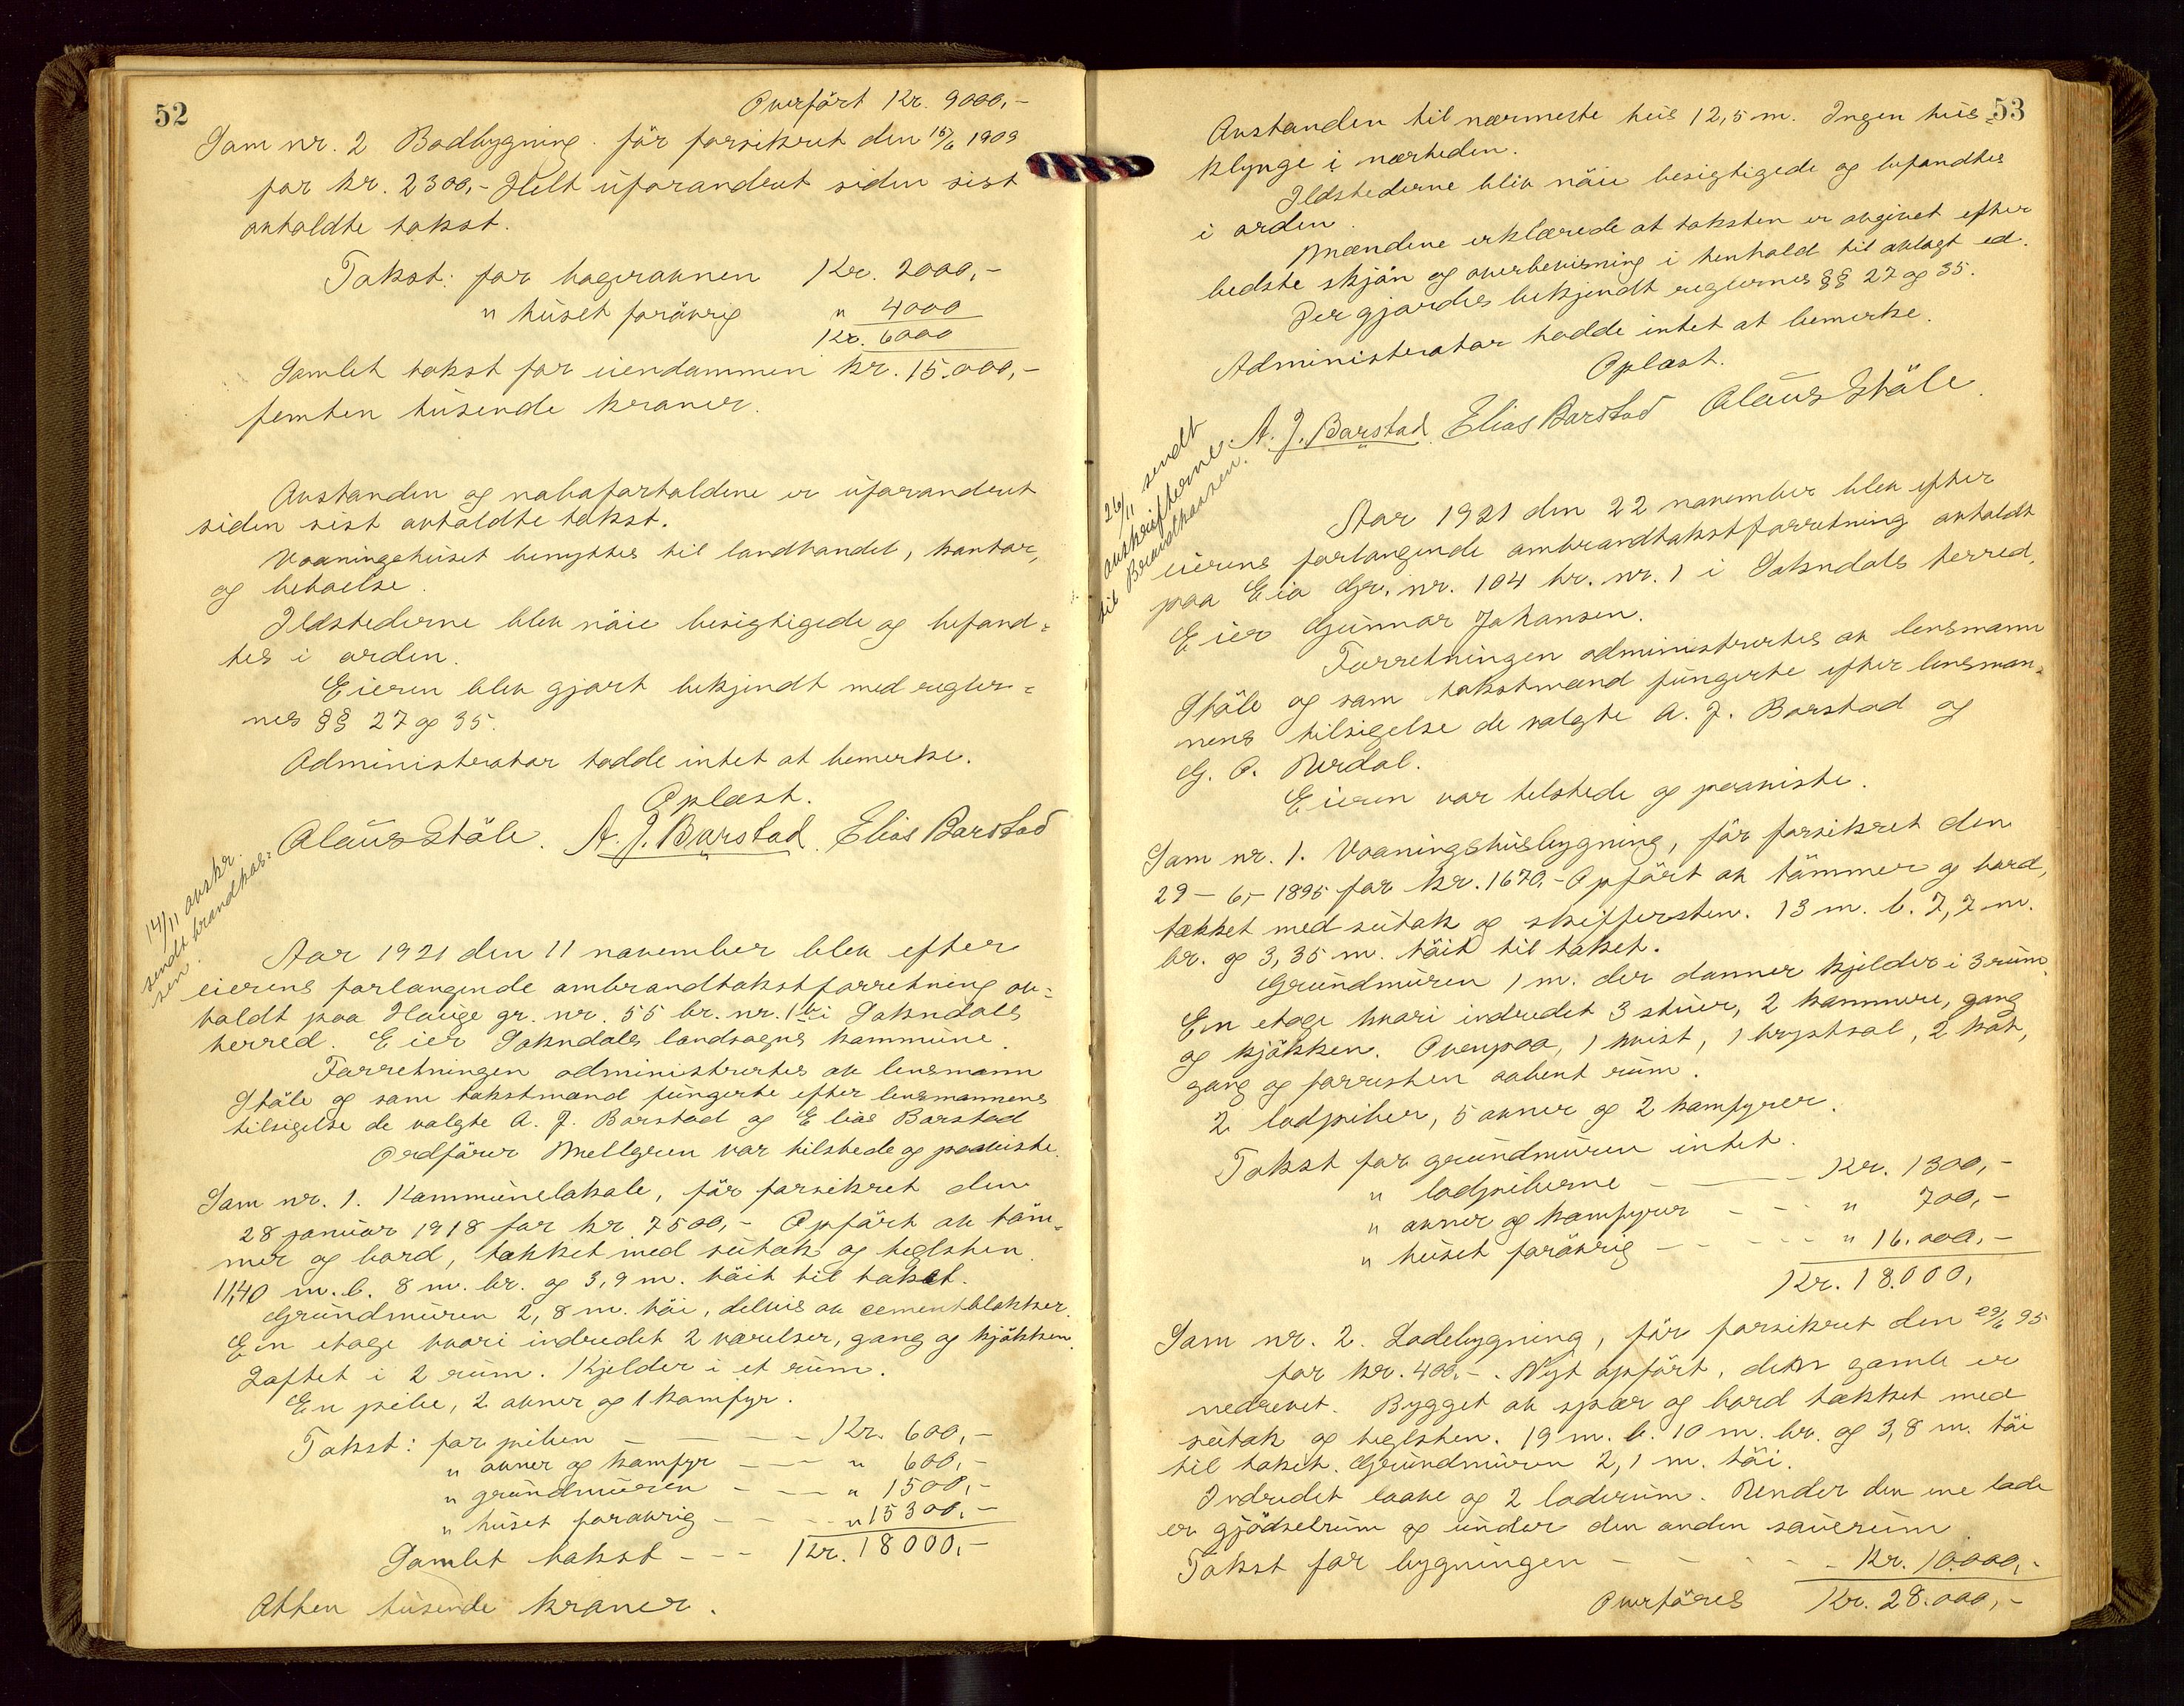 52
Overført Kr. 9000,-
Som nr. 2 Bodbygning. før forsikret den 15/6 1909
for kr. 2300,- Helt uforandret siden sist
avholdte takst.
Takst: for bagerovnen Kr. 2000,-
" huset forøvrig " 4000
Kr. 6000
Samlet takst for eiendommen kr. 15.000,-
femten tusende kroner.
Avstanden og naboforholdene er uforandret
siden sist avholdte takst.
Vaaningshuset benyttes til landhandel, kontor,
og beboelse.
Ildstederne blev nøie besigtigede og befand=
tes i orden.
Eieren blev gjort bekjendt med regler=
nes §§ 27 og 35.
Administrator hadde intet at bemerke.
Oplæst.
Olaus Støle. A. J. Barstad. Elias Barstad
14/11 avskr.
sendt brandkas=
sen.
Aar 1921 den 11 november blev efter
eierens forlangende ombrandtakstforretning av=
holdt paa Hauge gr. nr. 55 br. nr. 1b i Sokndals
herred. Eier Sokndals landsogns kommune.
Forretningen administrertes av lensmann
Støle og som takstmænd fungerte efter lensmannens
tilsigelse de valgte A. J. Barstad og Elias Barstad
Ordfører Mellgren var tilstede og paaviste.
Som nr. 1. Kommunelokale, før forsikret den
28 januar 1918 for kr. 7500,- Opført av tøm=
mer og bord, tækket med sutak og teglsten.
11,40 m. l. 8 m. br. og 3,9 m. høit til taket.
Grundmuren 2,8 m. høi, delvis av cementblokker.
En etage hvori indredet 2 værelser, gang og kjøkken.
Loftet i 2 rum. Kjelder i et rum.
En pibe, 2 ovner og 1 komfyr.
Takst: for piben - - - Kr. 600,-
" ovner og komfyr - - " 600,-
" grundmuren - - - " 1500,-
" huset forøvrig - - - " 15300,-
Samlet takst - - - Kr. 18000,-
Atten tusende kroner.
53
Avstanden til nærmeste hus 12,5 m. Ingen hus=
klynge i nærheden.
Ildstederne blev nøie besigtigede og befandtes
i orden.
Mændene erklærede at taksten er avgivet efter
bedste skjøn og overbevisning i henhold til avlagt ed.
Der gjordes bekjendt reglernes §§ 27 og 35.
Administrator hadde intet at bemerke.
Oplæst.
A. J. Barstad. Elias Barstad Olaus Støle.
26/11 sendt
avskrifterne
til Brandkassen.
Aar 1921 den 22 november blev efter
eierens forlangende ombrandtakstforretning avholdt
paa Eia Gr. nr. 104 br. nr. 1 i Sokndals herred.
Eier Gunnar Johansen.
Forretningen administrertes av lensmann
Støle og som takstmænd fungerte efter lensman=
nens tilsigelse de valgte A. J. Barstad og
G. O. Nerdal.
Eieren var tilstede og paaviste.
Som nr. 1. Vaaningshusbygning, før forsikret den
29-6- 1895 for kr. 1670,- Opført av tømmer og bord,
tækket med sutak og skiffersten. 13 m. l. 7,7 m.
br. og 3,35 m. høit til taket.
Grundmuren 1 m. der danner kjelder i 3 rum.
En etage hvori indredet 3 stuer, 2 kammere, gang
og kjøkken. Ovenpaa, 1 kvist, 1 brystsal, 2 kot,
gang og forresten aabent rum.
2 lodpiber, 5 ovner og 2 komfyrer.
Takst for grundmuren intet.
" lodpiberne - - Kr. 1300,-
" ovner og komfyrer - - - " 700,-
" huset forøvrig - - - - - " 16.000,-
Kr. 18.000,
Som nr. 2. Ladebygning, før forsikret den 29/6 95
for kr. 400,-. Nyt opført, den gamle er
nedrevet. Bygget av spær og bord tækket med
sutak og teglsten. 19 m. l. 10 m. br. og 3,8 m. høi
til taket. Grundmuren 2,1 m. høi.
Indredet laave og 2 laderum. Under den ene lade
er gjødselrum og under den anden sauerum.
Takst for bygningen - - - - - Kr. 10.000,-
Overføres Kr. 28.000,-